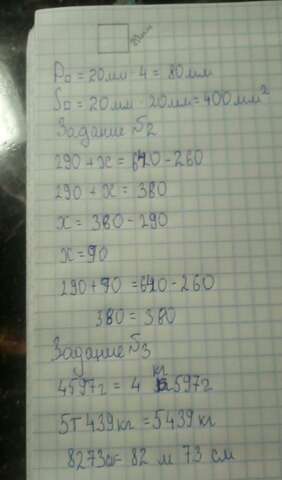 20мм
P□ = 20мм · 4 = 80мм
S□ = 20мм · 20мм = 400мм²
Задание №2
290 + x = 640 - 260
290 + x = 380
x = 380 - 290
x = 90
290 + 90 = 640 - 260
380 = 380
Задание №3
4597г = 4 кг 597г
5т 439кг = 5439кг
8273см = 82 м 73 см